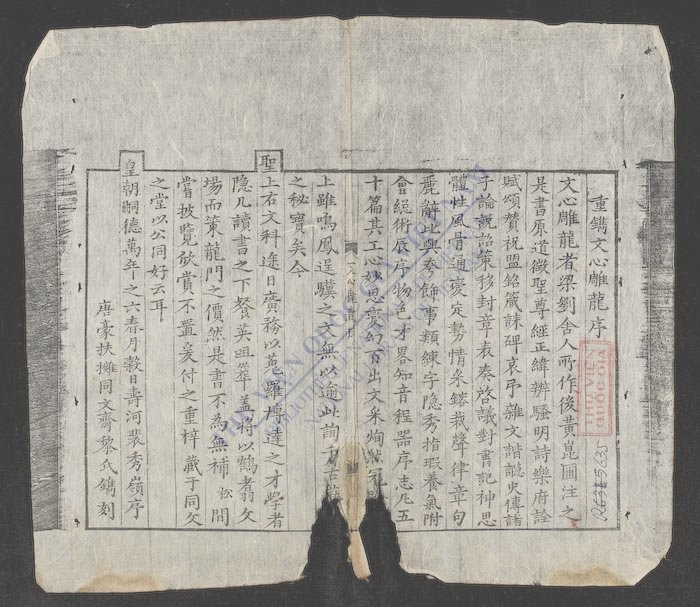 重鐫文心雕龍序
文心雕龍者梁劉舍人所作後黃崑圃注之
是書原道徵聖尊經正緯辨騷明詩樂府詮
賦頌贊祝盟銘箴誄碑哀弔雜文諧讔史傳諸
子論說詔策移封章表奏啓議對書記神思
體性風骨通變定勢情采鎔裁聲律章句
麗辭比興夸飾事類練字隱秀指瑕養氣附
會總術辰序物色才畧知音程器序志凡五
十篇其工心妙思夢幻百出文采炳
上雖鳴鳳逞驥之文無以逾此詢千古
之秘寶矣今
聖上右文科途日廣務以蒐羅博達之才學者
隱几讀書之下餐英咀華蓋將以鶴翥文
場而策龍門之價然是書不為無補於間
嘗披覽欣賞不置爰付之重梓藏于同文
之堂以公同好云耳
皇朝嗣德萬年之六春月穀日壽河裴秀嶺序
唐豪扶擁同文齋黎氏鐫刻
THƯ VIỆN
QUỐC GIA
5635
THƯ VIỆN QUỐC GIA VIỆT NAM